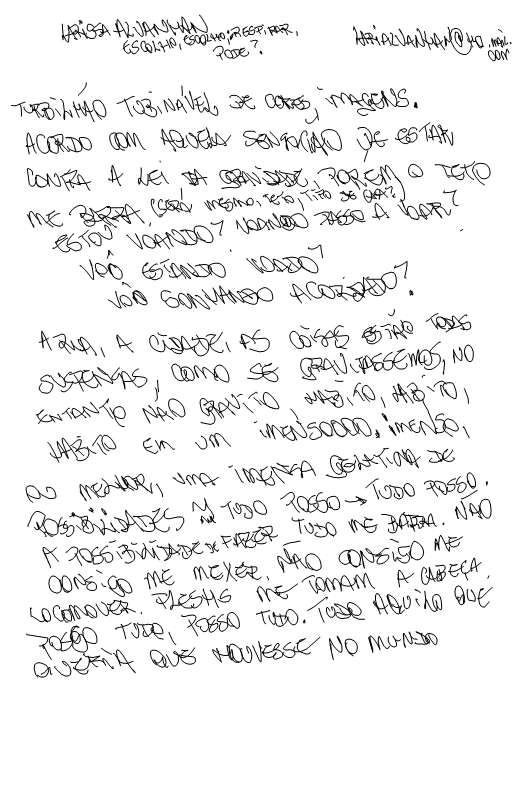 LARISSA ALVANHAN
ESCOLHO, ESCOLHO, RESPIRAR,
PODE?
TURBILHÃO DE CORES, IMAGENS.
ACORDO COM AQUELA SENSAÇÃO DE ESTAR
CONTRA A LEI DA GRAVIDADE, PORÉM O TETO
ME BARRA. (SERÁ MESMO, TETO, TIPO DE CASA?)
ESTOU VOANDO? QUANDO PASSO A VOAR?
VÔO ESTANDO VOADO?
VÔO SONHANDO ACORDADO?
A RUA, A CIDADE, AS COISAS ESTÃO TODAS
SUSPENSAS, COMO SE GRAVITASSEMOS, NO
ENTANTO NÃO GRAVITO, HABITO, HABITO,
HABITO EM UM IMENSOOOO. IMENSO,
OU MELHOR, UMA IMENSA GELATINA DE
POSSIBILIDADES TUDO POSSO → TUDO POSSO.
A POSSIBILIDADE DE FAZER TUDO ME BARRA. NÃO
CONSIGO ME MEXER. NÃO CONSIGO ME
LOCOMOVER. FLESHS ME TOMAM A CABEÇA.
POSSO TUDO, POSSO TUDO. TUDO AQUILO QUE
QUERIA QUE HOUVESSE NO MUNDO